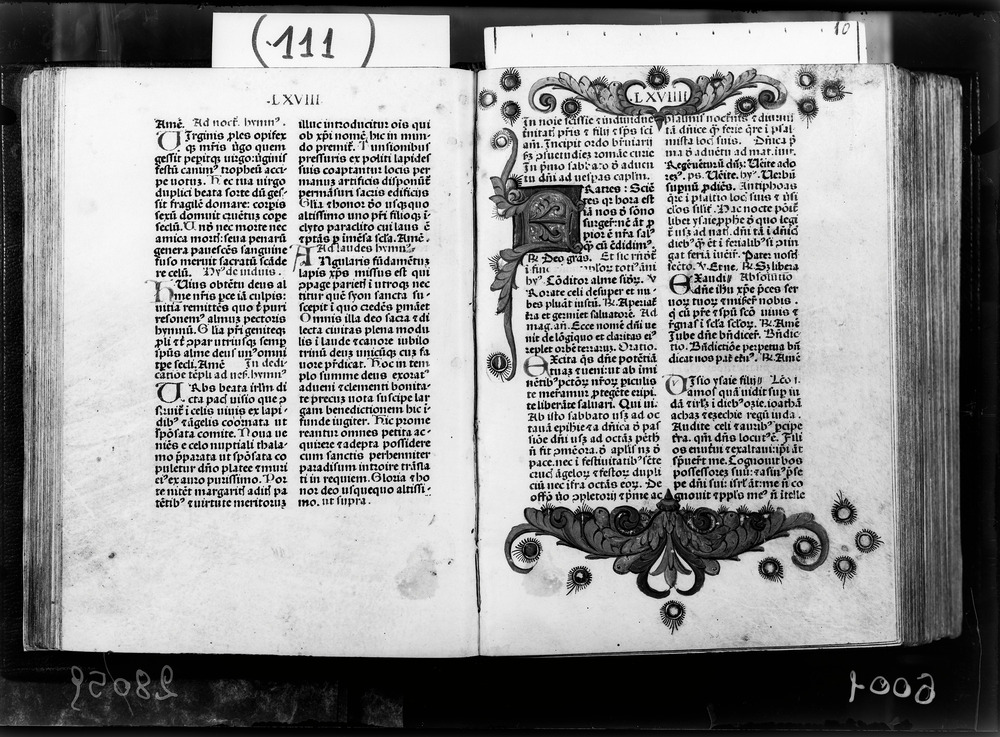 (111)
10
.LXVIII.
Amē. Ad noct. hymnꝰ.
Uirginis ples opifex
qꝫ mr̄is ūgo quem
gessit pepitqꝫ uirgo: ūginis
festū canimꝰ tropheū acci
pe uotuꝫ. Hec tua uirgo
duplici beata sorte dū ges-
sit fragilē domare: corpis
sexū domuit cruētuꝫ corpe
seclū. Uñ nec morte nec
amica morti: seua penarū
genera pauescēs sanguine
fuso meruit sacratū scāde
re celū. Hyꝰ de uiduis.
Huius obtētu deus al
me nr̄is pce iā culpis:
uitia remittēs quo t̄ puri
resonemꝰ almuꝫ pectoris
hymnū. Glia pr̄i geniteqꝫ
pli
spūs alme deus unꝰ omni
tp̄e secli. Amē In dedi
catiōe tēpli ad ues. hymnꝰ
Urbs beata irlm̄ di
cta pacꝭ uisio que
ī celis uiuis ex lapi-
dibꝰ & āgelis coornata ut
spōsata comite. Noua ue
niēs e celo nuptiali thala-
mo p̄parata ut spōsata co
puletur dn̄o platee & muri
eiꝰ ex auro purissimo. Por
te nitēt margaritꝭ aditꝭ pa
tētibꝰ & uirtute meritoruꝫ
illuc introducitur oīs qui
ob xp̄i nomē hic in mun-
do premit̄. Tunsionibus
pressuris ex politi lapides
suis coaptantur locis per
manuꝫ artificis disponūt̄
permāsuri sacris edificiis
Glīa & honor dō usqꝫquo
altissimo uno pr̄i filioqꝫ ī-
clyto paraclito cui laus ē
& ptās p īmēsa scl̄a. Amē.
Ad laudes hymnꝰ.
Angularis fūdamētuꝫ
lapis xp̄s missus est qui
cōpage parietꝭ ī utroqꝫ nec
titur quē syon sancta su-
scepit ī quo credēs pmāet
Omnis illa deo sacra & di
lecta ciuitas plena modu
lis ī laude & canore iubilo
trinū deuꝫ unicūqꝫ cuꝫ fa
uore pr̄dicat. Hoc in tem
plo summe deus exoratꝰ
adueni & clementi bonita-
te precuꝫ uota suscipe lar
gam benedictionem hic ī-
funde iugiter. Hic prome
reantur omnes petita ac-
quirere & adepta possidere
cum sanctis perhenniter
paradisum introire trāsla
ti in requiem. Gloria & ho
nor deo usquequo altissi-
mo. ut supra.
.LXVIIII.
tm̄. Incipit ordo br̄uiarij
In pmo sabbato d̄ aduen
tu dn̄i ad uesꝑas caplm̄.
Fratres: Sciē
tes qꝛ hora est
iā nos d̄ sōno
surger̄: nē at̄ ꝓ
pior ē nr̄a sal
qꝫ cū ēdidimꝰ.
℟. Deo gr̄as. Et sic rn̄det̄
hyꝰ. Cōditor alme siderꝫ. ℣.
Rorate celi desuper et nu-
bes pluāt iustū. ℟. Aperiat̄
tra et germīet saluatorē. Ad
mag. an̄. Ecce nomē dn̄i ue
nit de lōgiquo et claritas eiꝰ
replet orbē terraruꝫ. Oratio.
Excita qs̄ dn̄e potētiā
tuaꝫ & ueni: ut ab imi
nētibꝰ pctōrꝫ nr̄orꝫ piculis
te meramur ptegēte eripi.
te liberāte saluari. Qui ui.
Ab isto sabbato usqꝫ ad oc
tauā epihīe & a dn̄ica
siōe dn̄i usqꝫ ad octaꝭ
n̄ fit
pace. nec ī festiuitatibꝰ
crucꝭ āgelorꝫ & festorꝫ dupli
ciū nec īfra octās eorꝫ. De
tā dn̄ice qꝫ ferie qr̄e ī psal
mista locꝭ suis. Dn̄ica p
ma d̄ aduētu ad mat. īuit.
Regē uēturū dn̄ꝫ: Uēite ado
reꝫꝰ. ps. Uēite. hyꝰ. Uerbū
supnū pdiēs. Antiphonas
qr̄e ī psaltio locꝭ suis & ūsi
clos silit̄. Hac nocte pōit̄
liber ysaie pphe d̄ quo legit̄
ē usqꝫ ad nat. dn̄i tā ī dn̄icꝭ
diebꝰ qꝫ ēt ī ferialibꝰ
gat feria īueir̄. Pater nost̄
secto. ℣. Et ne. ℟. Sꝫ libera
Exaudi Absolutio
dn̄e ihu xp̄e pces ser
uorꝫ tuorꝫ & miser̄ nobis.
q̄ cū pr̄e & spū scō uiuis &
r̄gnas ī scl̄a sclorꝫ. ℟. Amē
Jube dn̄e bn̄dicer̄. Bn̄dic-
tio. Bn̄dictiōe perpetua bn̄
dicat nos pat̄ et̄nꝰ. ℟. Amē
Uisio ysaie filij Leō i.
amos quā uidit sup iu
dā & irlꝫ ī diebꝰ ozie. ioathā
achaz & ezechie regū iuda.
Audite celi & auribꝰ pcipe
tr̄a. qm̄ dn̄s locutꝰ ē. Filī
os enutriui & exaltaui: ip̄i āt
spreuer̄t me. Cognouit bos
possessorē suū: & asinꝰ
pe dn̄i sui: isrl̄ āt: me n̄ co
gnouit & ppl̄s meꝰ n̄ ītelle
28059
6001